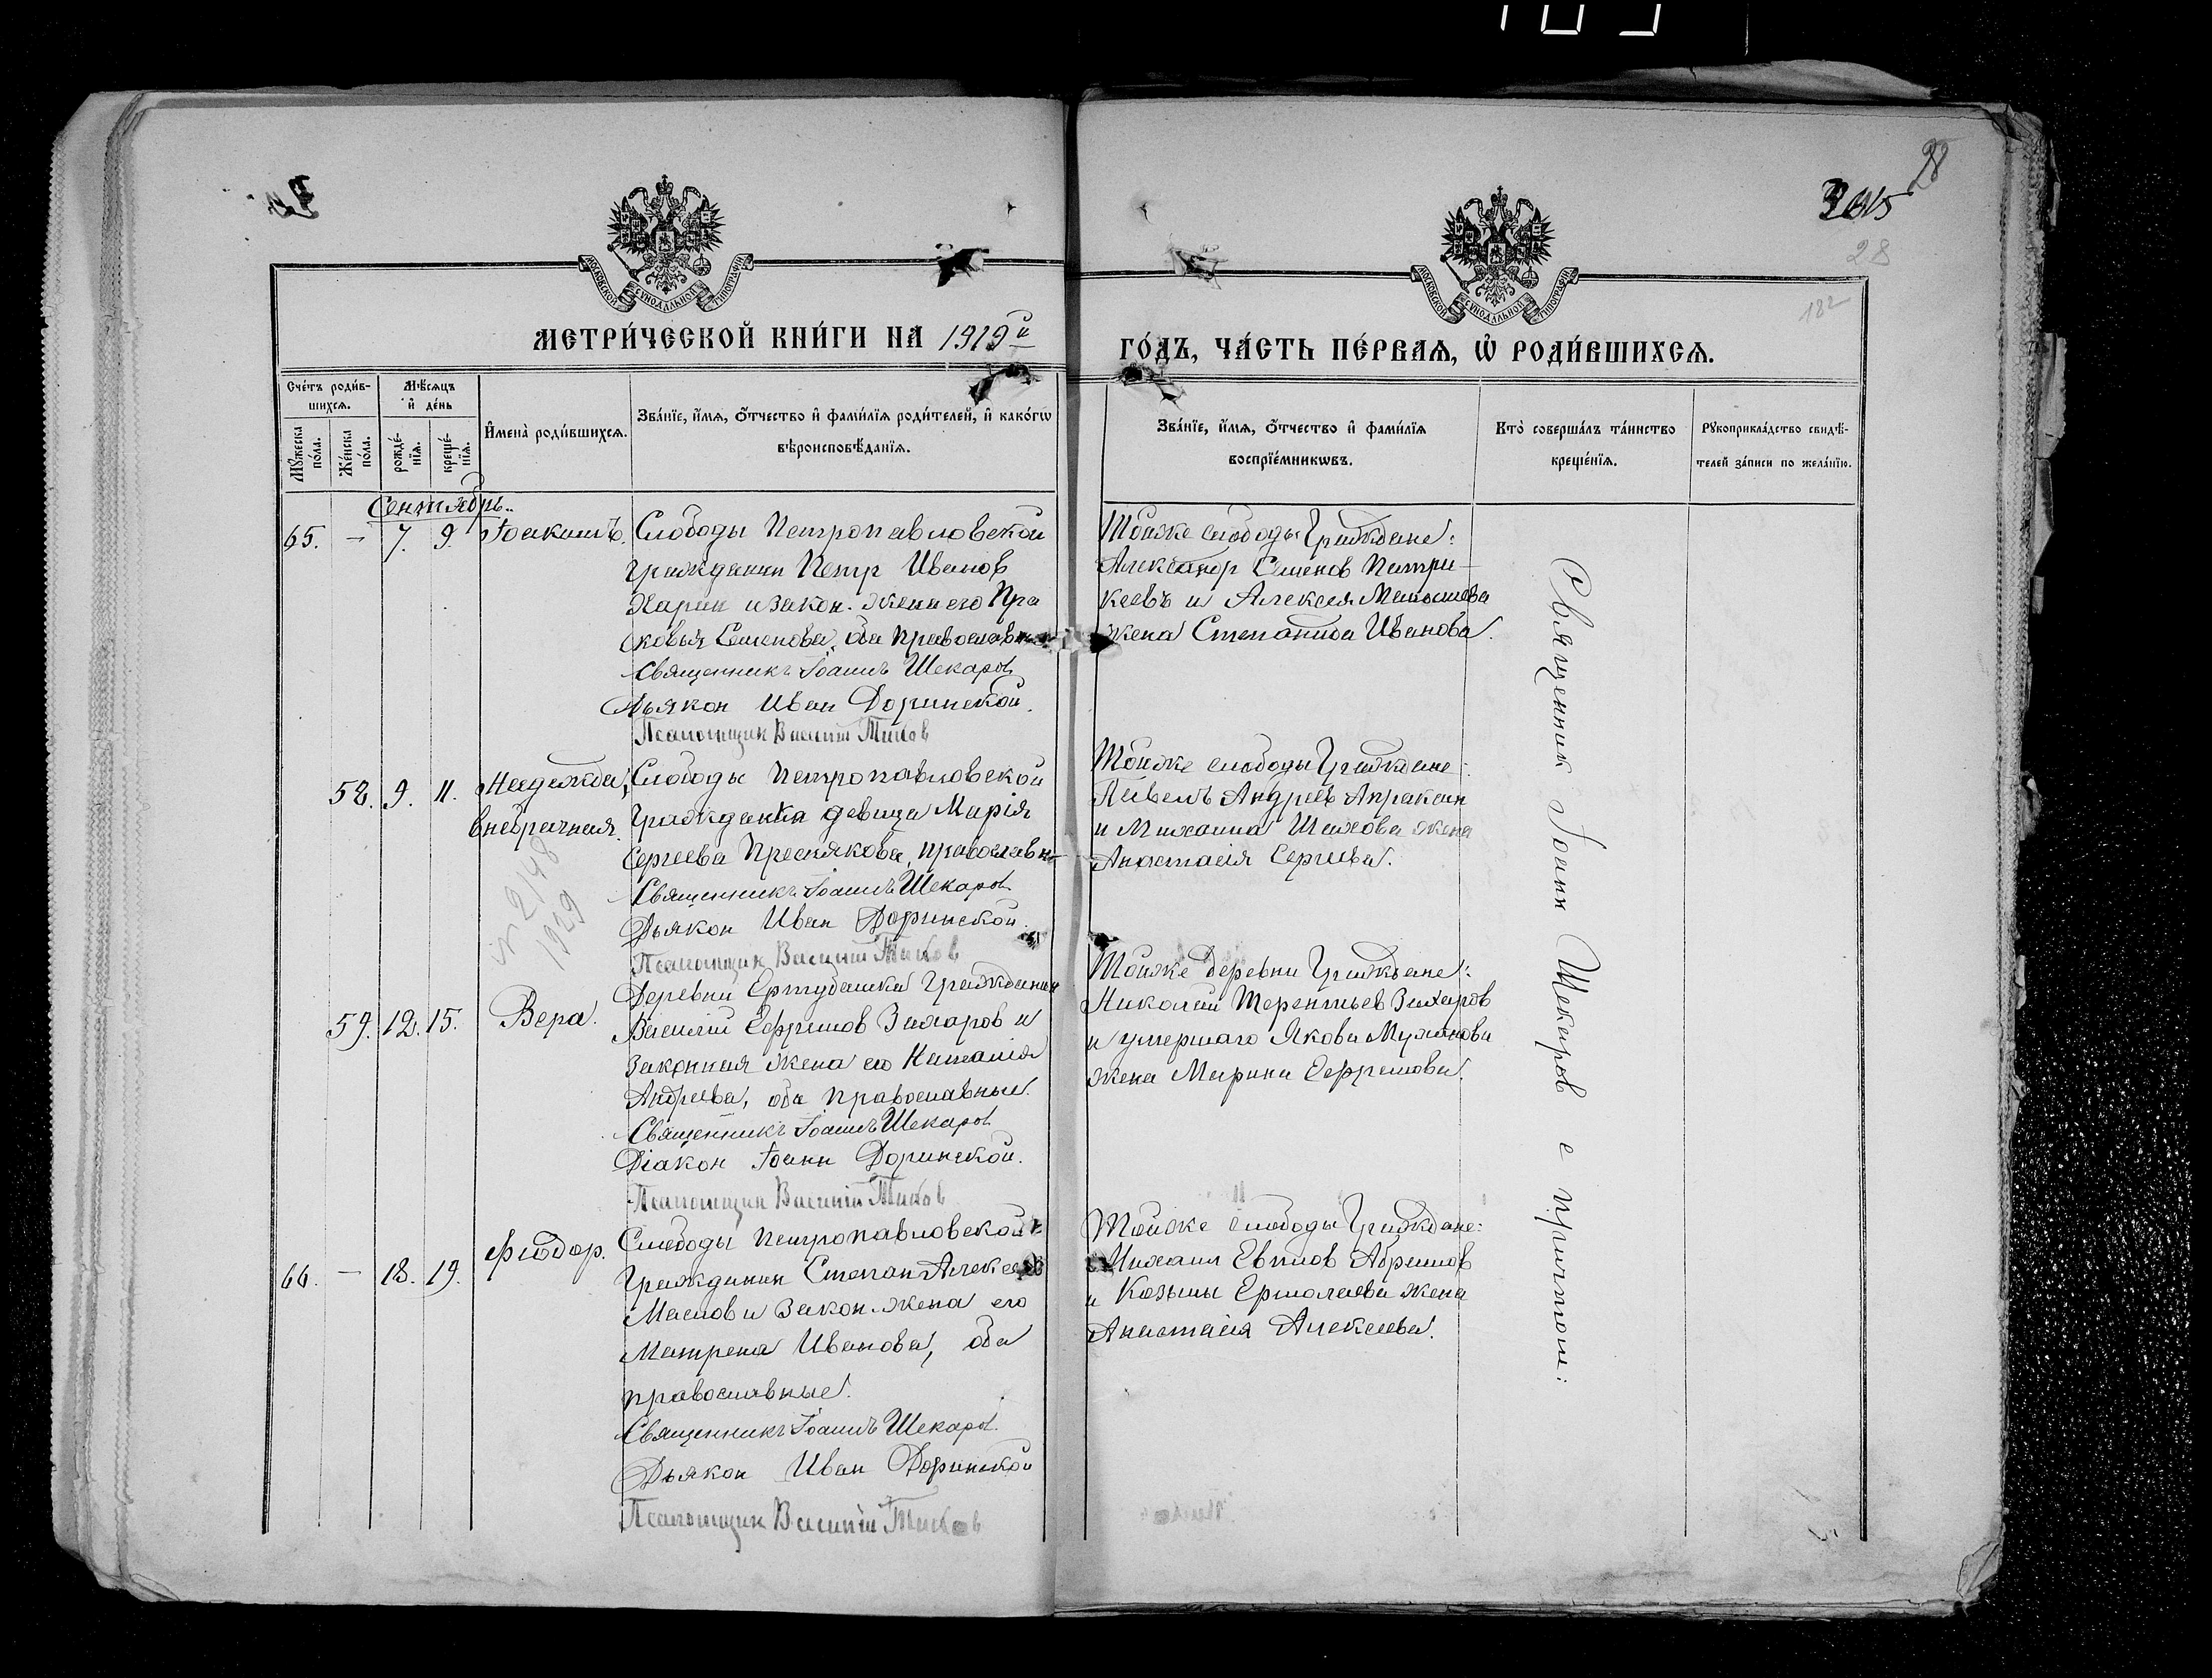 28
3015
28
182
МОСКОВСКОЙ СУНОДАЛЬНОЙ ТИПОГРАФІИ
МОСКОВСКОЙ СУНОДАЛЬНОЙ ТИПОГРАФІИ
МЕТРИ́ЧЕСКОЙ КНИ́ГИ НА 1919й
ГО́ДЪ, ЧА́СТЬ ПЕ́РВАѦ, Ѡ҆ РОДИ́ВШИХСѦ.
Сче́тъ роди́в-
шихсѧ.
Мѣ́сѧцъ
и҆ де́нь
Мꙋ́жеска
по́ла.
Же́нска
по́ла.
рожде́-
нїѧ.
креще́-
нїѧ.
И҆мена̀ роди́вшихсѧ.
Зва́нїе, и҆́мѧ, ѻ҆́тчество и҆ фами́лїѧ роди́телей, и҆ како́гѡ
вѣроисповѣ́данїѧ.
Зва́нїе, и҆́мѧ, ѻ҆́тчество и҆ фами́лїѧ
воспрїе́мникѡвъ.
Кто̀ соверша́лъ та́инство
креще́нїѧ.
Рꙋкоприкла́дство свидѣ́-
телей за́писи по жела́нїю.
Сентябрь.
65. — 7. 9. Іоакимъ.
Слободы Петропавловской
гражданин Петр Иванов
Харин и закон. жена его Пра
сковья Семенова, оба православн
Священникъ Іоаннъ Шекаров
Дьякон Иван Доринской.
Псаломщик Василій Титов
Тойже слободы Граждане:
Александр Семенов Патри-
кеевъ и Алексея Меньшова
жена Степанида Иванова.
58. 9. 11. Надежда,
внебрачная.
№ 2148
1929
Слободы Петропавловской
гражданка девица Марія
Сергеева Преснякова, православн-
Священникъ Іоаннъ Шекаров
Дьякон Иван Доринской.
Псаломщик Василій Титов
Тойже слободы Граждане:
Павелъ Андреевъ Апраксин
и Михаила Шахова жена
Анастасія Сергеева.
59. 12. 15. Вера.
Деревни Ертубашка Гражданин
Василій Ефремов Захаров и
законная жена его Наталія
Андреева, оба православные.
Священникъ Іоаннъ Шекаров
Діакон Іоанн Доринской.
Псаломщик Василій Титов
Тойже деревни Граждане:
Николай Терентьев Захаров
и умершаго Якова Муханова
жена Марина Ефремова.
66. — 18. 19. Фіодор.
Слободы Петропавловской
Гражданин Степан Алексеев
Маслов и закон. жена его
Матрена Иванова, оба
православные.
Священникъ Іоаннъ Шекаров
Дьякон Иван Доринской
Псаломщик Василій Титов
Тойже слободы Граждане:
Михаил Евпилов Абрамов
и Козьмы Ермолаева жена
Анастасія Алексеева.
Священник Іоанн Шекаров с причтом: